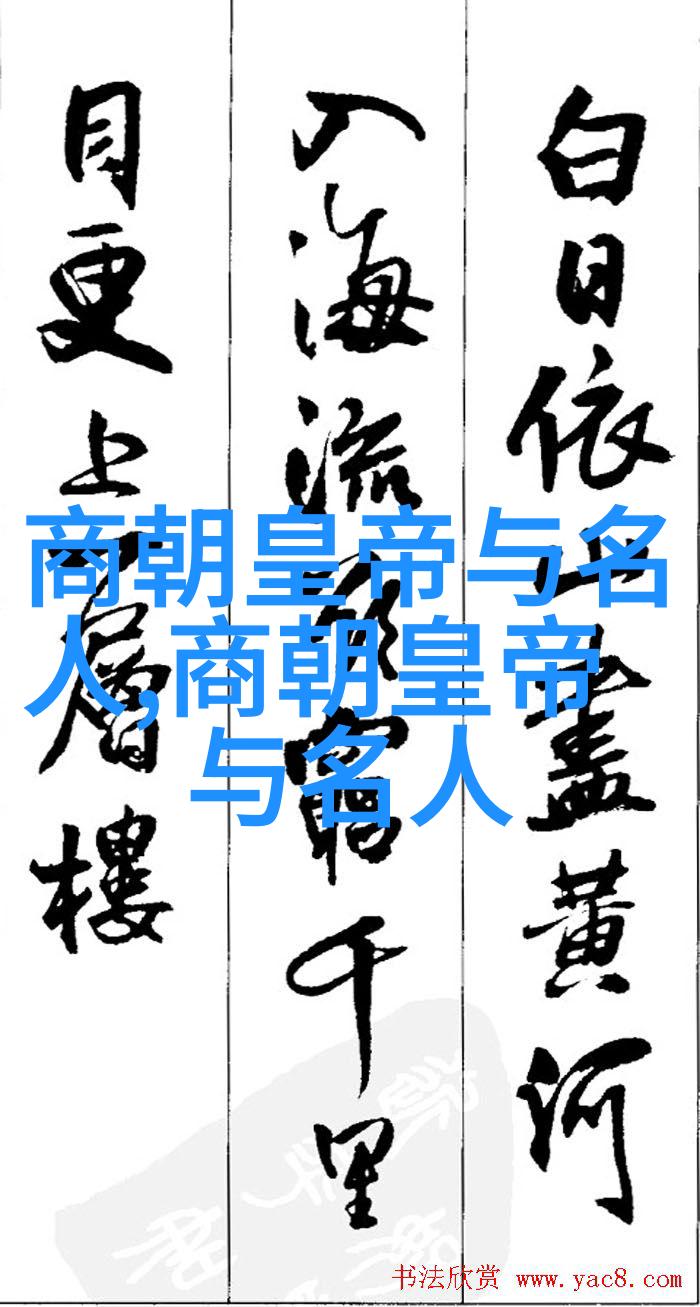 白日依山盡黃河
入海流欲窮千里
目更上一層樓
商朝皇帝与名
人,商朝皇帝
与名人
书法欣赏 www.yac8.com